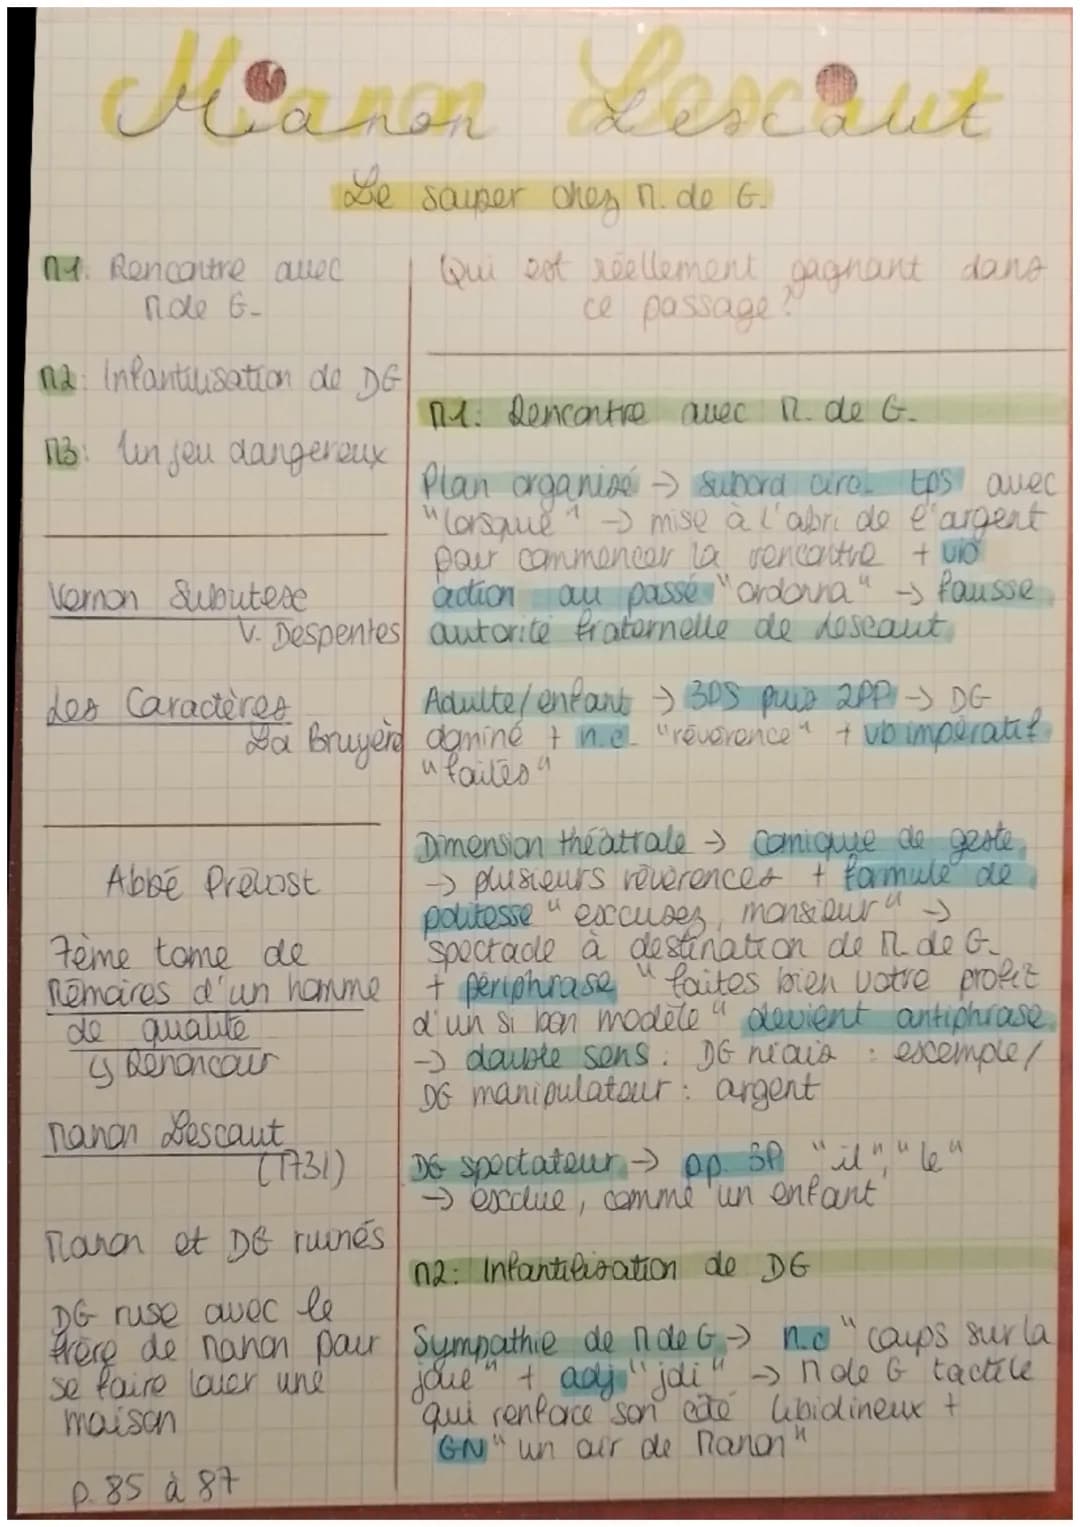 Manon Lescaut
Le souper chez M. de G.
M1: Rencontre avec
M de G.
M2: Infantilisation de DG
M3: Un jeu dangereux
Vernon Subutex
V. Despentes
Les Caractères
La Bruyère
Abbé Prévost
7ème tome de
Mémoires d'un homme
de qualité
↳ Renoncour
Manon Lescaut
(1731)
Manon et DG ruinés
DG ruse avec le
frère de Manon pour
se faire louer une
maison
p. 85 à 87
Qui est réellement gagnant dans
ce passage?
M1: Rencontre avec M. de G.
Plan organisé → subord circ. tps avec
"lorsque" → mise à l'abri de l'argent
pour commencer la rencontre + vb
action au passé "ordonna" → fausse
autorité fraternelle de Lescaut
Adulte/enfant → 3PS puis 2PP → DG
dominé + n.c. "révérence" + vb impératif
"faites"
Dimension théâtrale → comique de geste
→ plusieurs révérences + formule de
politesse "excusez, monsieur" →
spectacle à destination de M. de G.
+ périphrase "faites bien votre profit
d'un si bon modèle" devient antiphrase
→ double sens : DG niais : exemple/
DG manipulateur : argent
DG spectateur → pp. 3P "il", "le"
→ exclue, comme un enfant
M2: Infantilisation de DG
Sympathie de M de G → n.c "coups sur la
joue" + adj "joli" → M de G tactile
qui renforce son côté libidineux +
GN "un air de Manon"